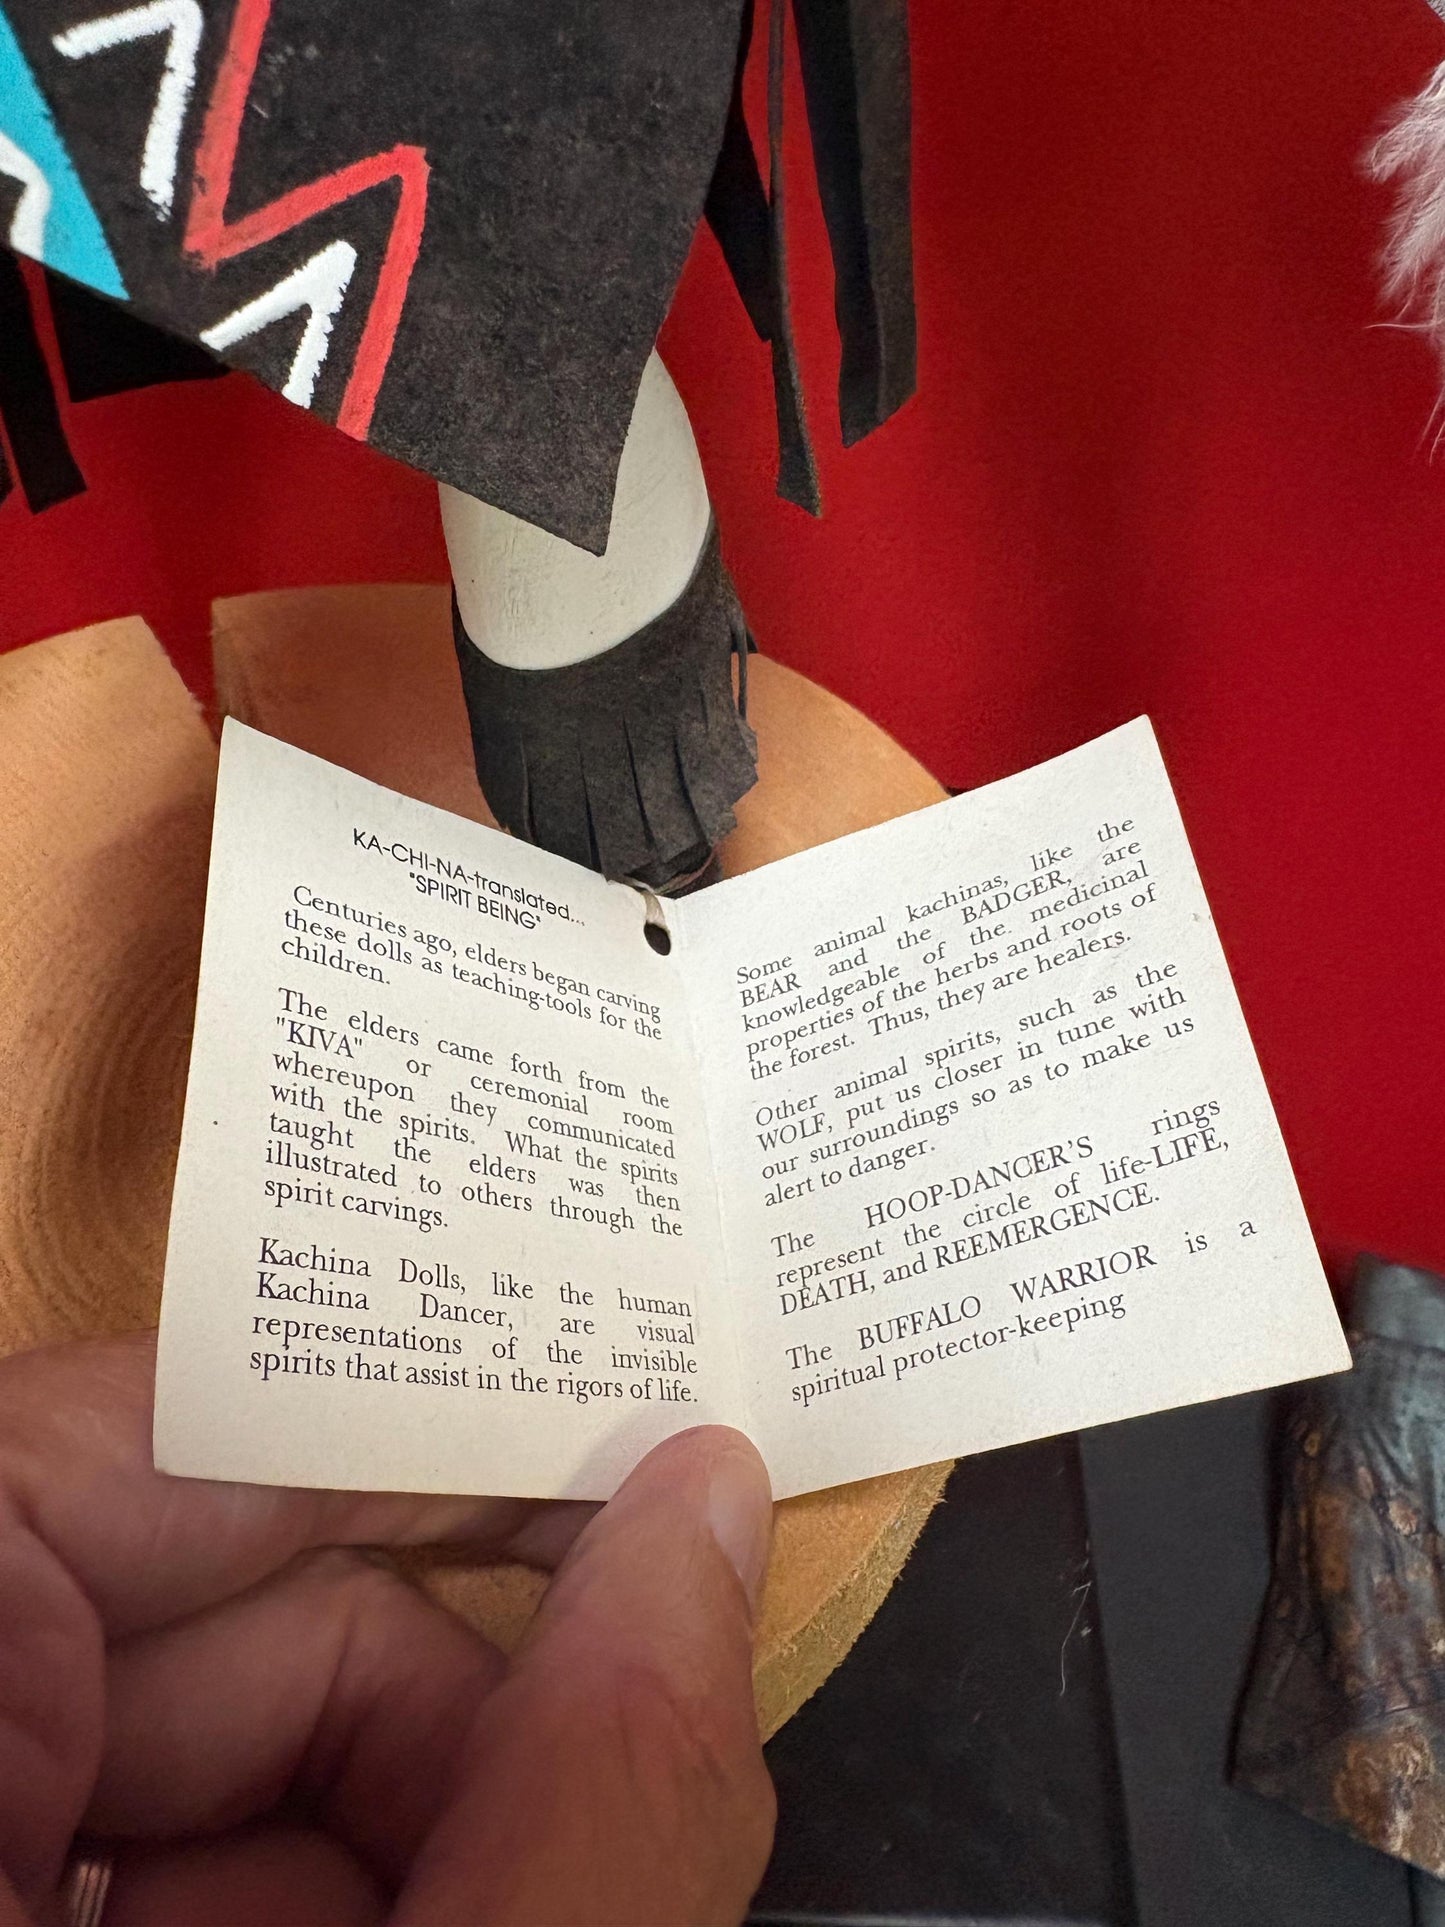 KA-CHI-NA-translated...
"SPIRIT BEING"
Centuries ago, elders began carving
these dolls as teaching-tools for the
children.
The elders came forth from the
"KIVA" or ceremonial room
whereupon they communicated
with the spirits. What the spirits
taught the elders was then
illustrated to others through the
spirit carvings.
Kachina Dolls, like the human
Kachina Dancer, are visual
representations of the invisible
spirits that assist in the rigors of life.
Some animal kachinas, like the
BEAR and the BADGER, are
knowledgeable of the medicinal
properties of the herbs and roots of
the forest. Thus, they are healers.
Other animal spirits, such as the
WOLF, put us closer in tune with
our surroundings so as to make us
alert to danger.
The HOOP-DANCER'S rings
represent the circle of life-LIFE,
DEATH, and REEMERGENCE.
The BUFFALO WARRIOR is a
spiritual protector-keeping